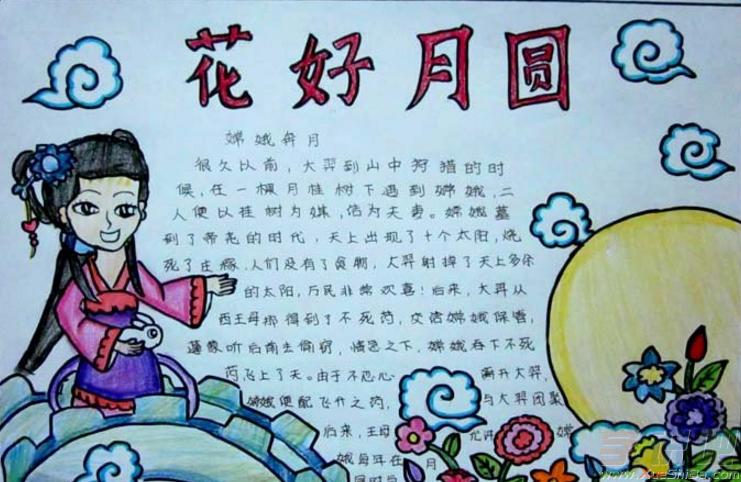 花好月圆
嫦娥奔月
很久以前，大羿到山中狩猎的时
候，在一棵月桂树下遇到嫦娥，二
人便以桂树为媒，结为夫妻。嫦娥
到了帝尧的时代，天上出现了十个太阳，烧
死了庄稼，人们没有了食物，大羿射掉了天上多余
的太阳，万民非常欢喜！后来，大羿从
西王母那得到了不死药，交给嫦娥保管，
蓬蒙听后前去偷窃，情急之下，嫦娥吞下不死
药飞上了天。由于不忍心 离开大羿，
嫦娥 飞升之药， 与大羿团聚
后来，王母 允许 嫦
娥每年在 月
www.XueShiBa.com